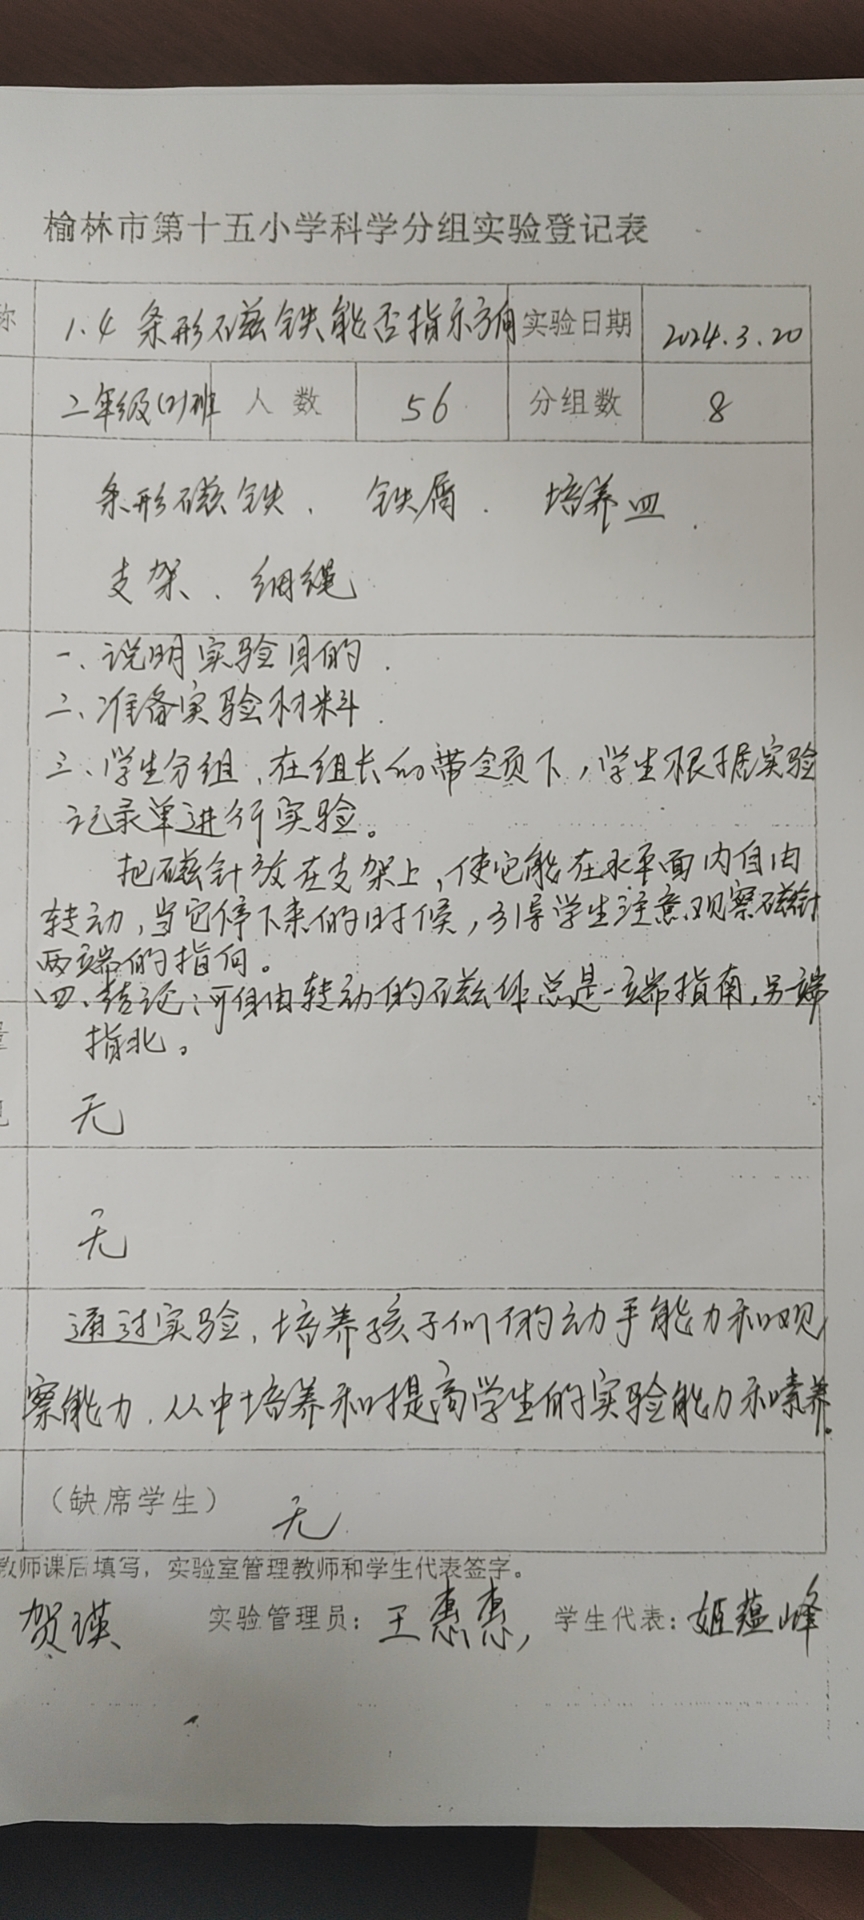 榆林市第十五小学科学分组实验登记表
称 1.4 条形磁铁能否指示方向 实验日期 2024.3.20
二年级(2)班 人数 56 分组数 8
条形磁铁、铁屑、培养皿、
支架、细绳
一、说明实验目的.
二、准备实验材料.
三、学生分组、在组长的带领下，学生根据实验
记录单进行实验。
把磁针放在支架上，使它能在水平面内自由
转动，当它停下来的时候，引导学生注意观察磁针
两端的指向。
四、结论：可自由转动的磁体总是一端指南，另端
指北。
无
无
通过实验，培养孩子们的动手能力和观
察能力，从中培养和提高学生的实验能力和素养。
（缺席学生） 无
教师课后填写，实验室管理教师和学生代表签字。
贺瑛 实验管理员：王惠惠 学生代表：姬蕴峰